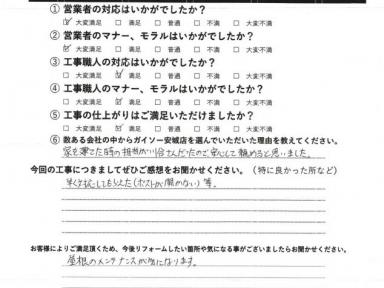 ① 営業者の対応はいかがでしたか？
☑ 大変満足 □ 満足 □ 普通 □ 不満 □ 大変不満
② 営業者のマナー、モラルはいかがでしたか？
☑ 大変満足 □ 満足 □ 普通 □ 不満 □ 大変不満
③ 工事職人の対応はいかがでしたか？
□ 大変満足 ☑ 満足 □ 普通 □ 不満 □ 大変不満
④ 工事職人のマナー、モラルはいかがでしたか？
□ 大変満足 ☑ 満足 □ 普通 □ 不満 □ 大変不満
⑤ 工事の仕上がりはご満足いただけましたか？
□ 大変満足 ☑ 満足 □ 普通 □ 不満 □ 大変不満
⑥ 数ある会社の中からガイソー安城店を選んでいただいた理由を教えてください。
家を建てた時の担当が だったので安心して頼めると思いました。
今回の工事につきましてぜひご感想をお聞かせください。（特に良かった所など）
してもらえた（ポストが開かない）等。
お客様によりご満足頂くため、今後リフォームしたい箇所や気になる事がございましたらお聞かせください。
屋根のメンテナンスが気になります。